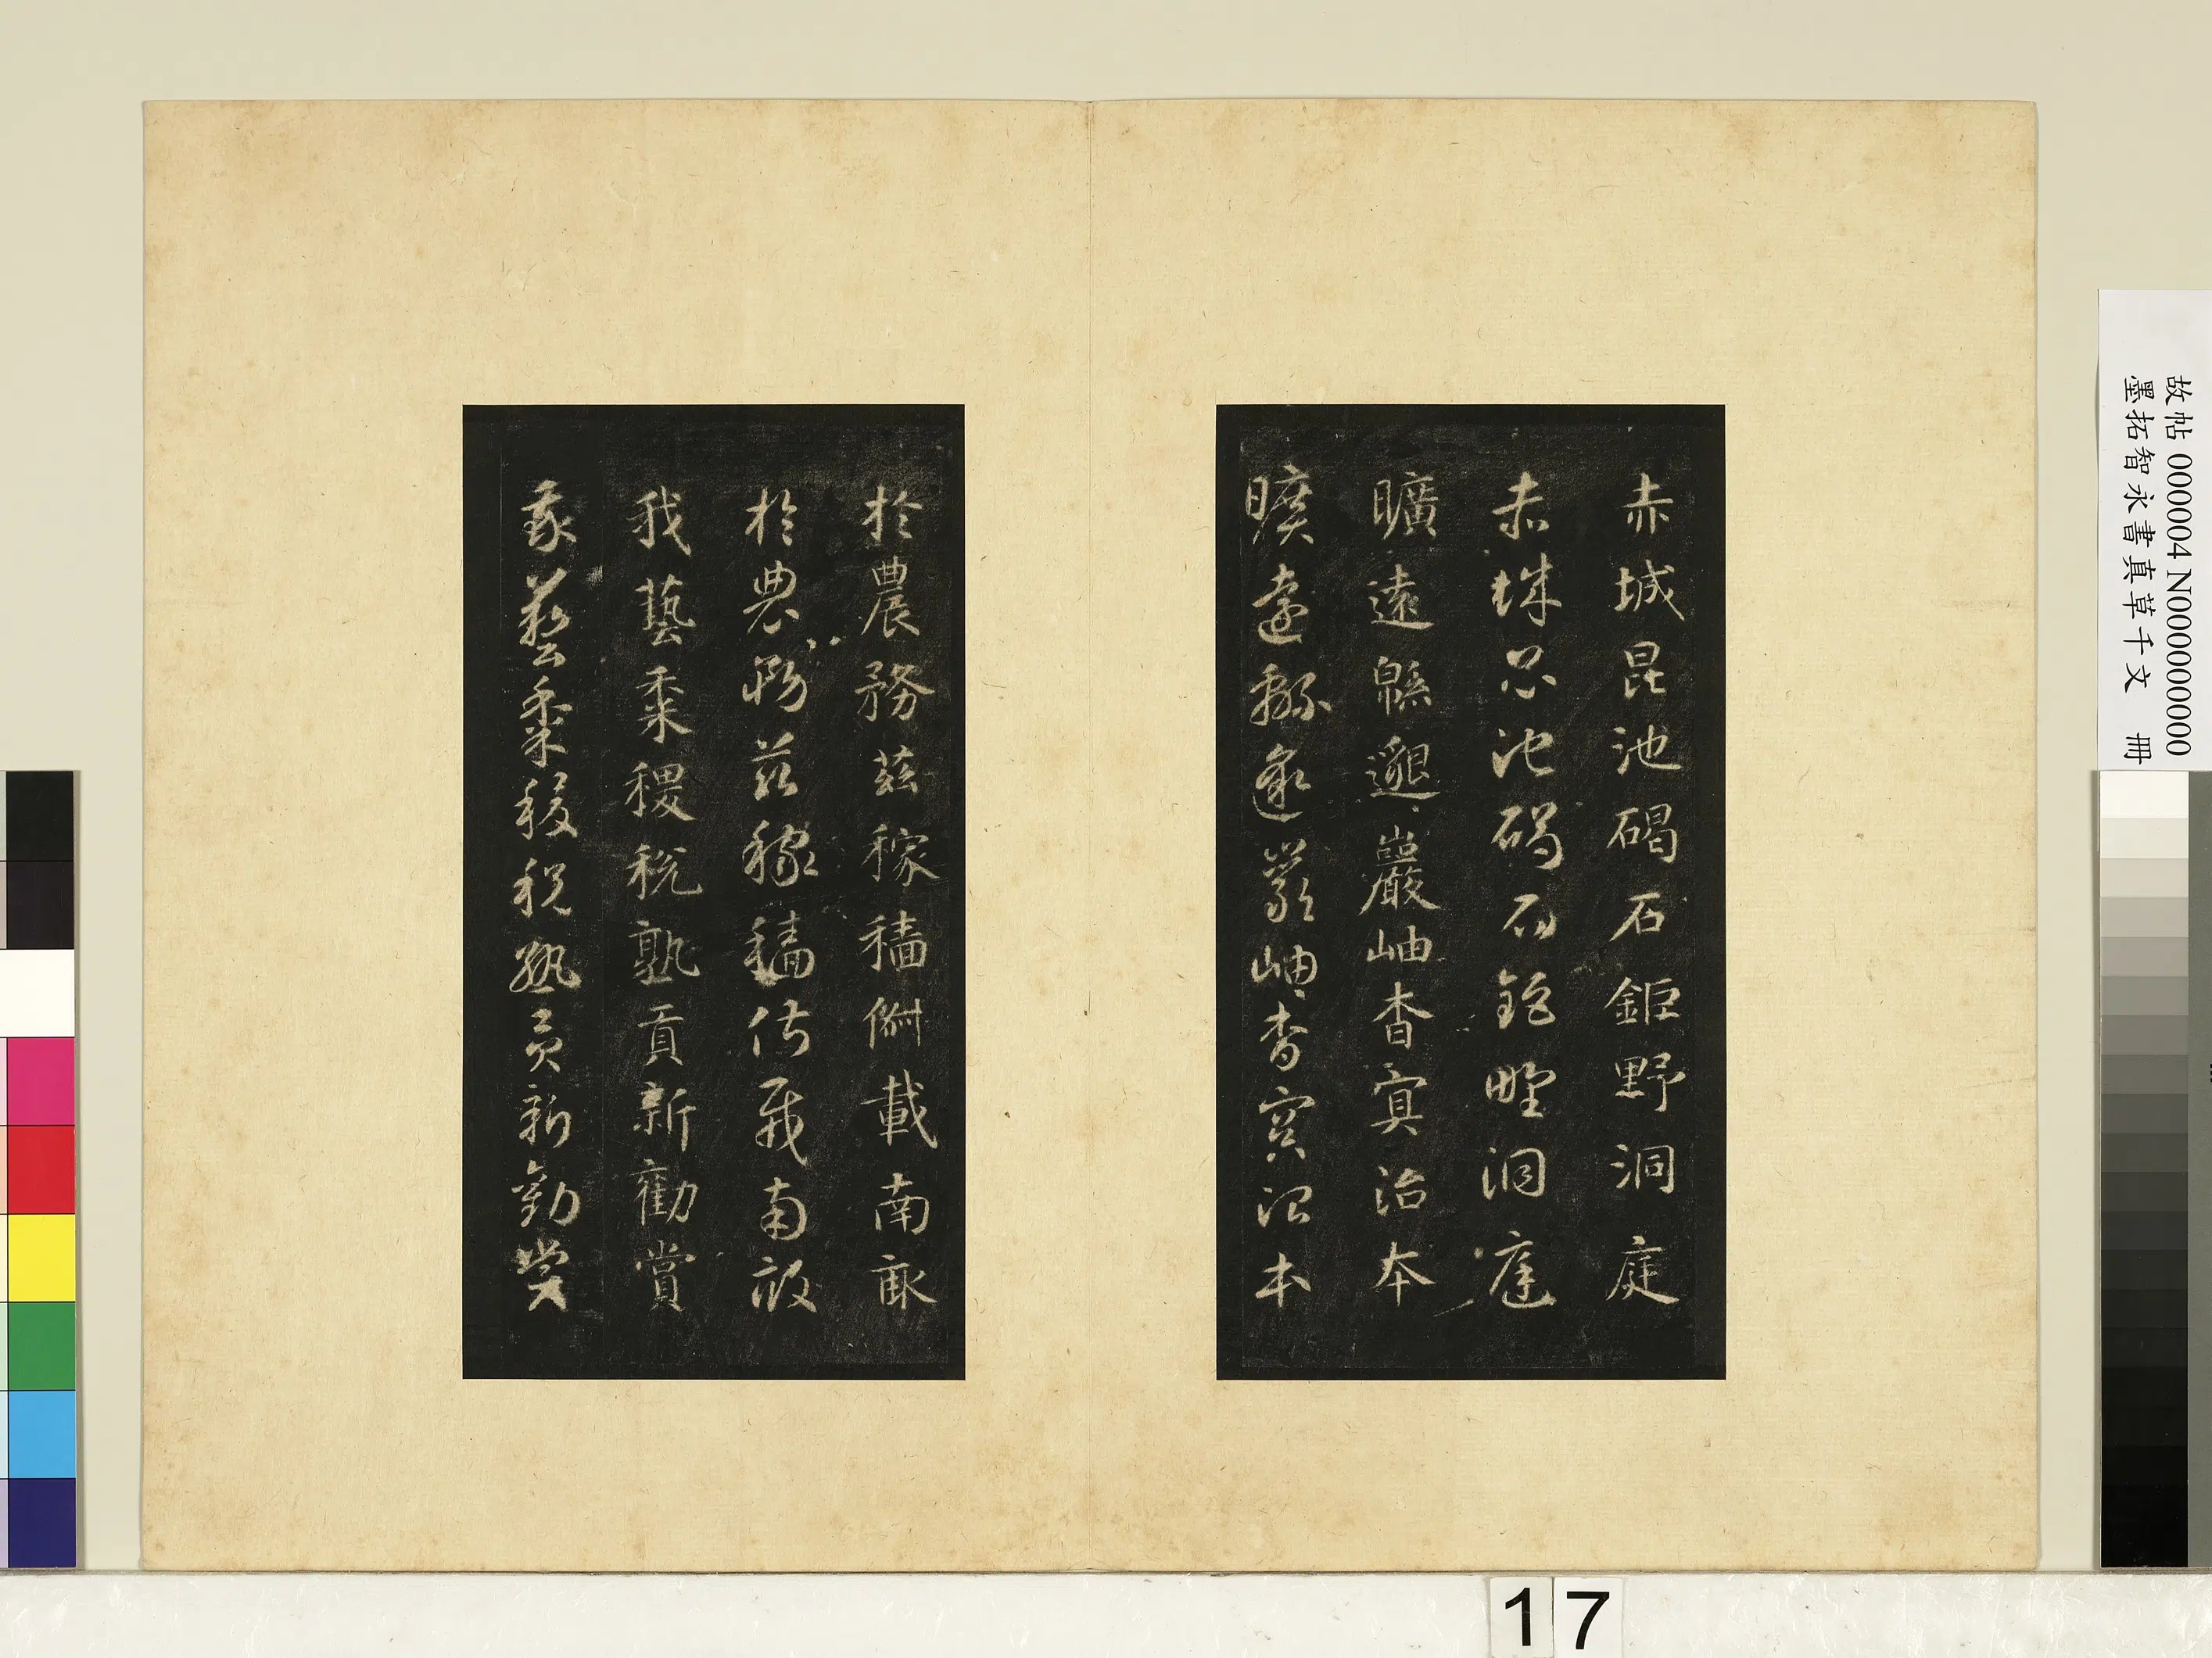 赤城昆池碣石鉅野洞庭
赤城昆池碣石鉅野洞庭
曠遠緜邈巖岫杳冥治本
曠遠緜邈巖岫杳冥治本
於農務茲稼穡俶載南畝
於農務茲稼穡俶載南畝
我藝黍稷稅熟貢新勸賞
我藝黍稷稅熟貢新勸賞
故帖 000004 N000000000
墨拓智永書真草千文 冊
17